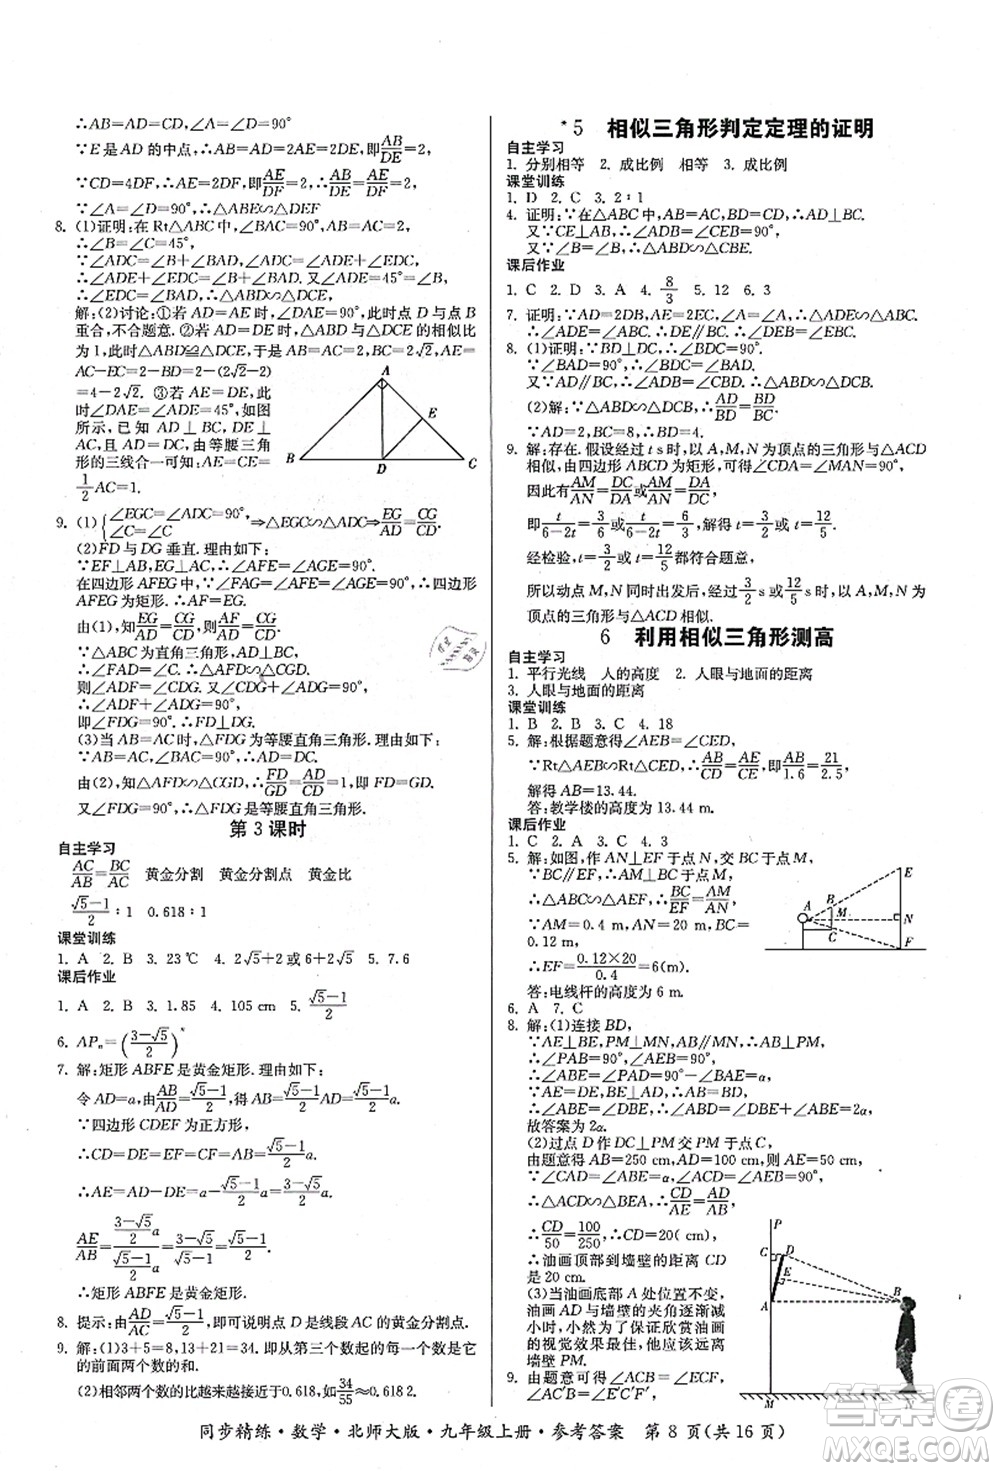 ∴AB=AD=CD,∠A=∠D=90°
∵E是AD的中点,∴AD=2AE=2DE,即AB/DE=2.
∵CD=4DF,∴AE=2DF,即AE/DF=2,∴AB/DE=AE/DF.
∵∠A=∠D=90°,∴△ABE∽△DEF
8. (1)证明:在Rt△ABC中,∵AB=AC=2,
∴∠B=∠C=45°.
∵∠ADC=∠B+∠BAD,∴∠ADE+∠EDC=
∠ADE+∠BAD.又∵∠ADE=45°=∠B,
∴∠EDC=∠BAD,∴△ABD∽△DCE.
解:(2)讨论:①若AD=AE时,此时点D与点B
重合,不合题意.②若AD=DE时,△ABD与△DCE的相似比
为1,此时△ABD≌△DCE,于是AB=AC=2,BC=2√2,AE=
AC-EC=2-BD=2-(2√2-2)
=4-2√2. ③若AE=DE,此
时∠DAE=∠ADE=45°,如图
所示,已知AD⊥BC,DE⊥
AC,由等腰三角
形的三线合一可知:AE=CE=
1/2AC=1.
A
E
B
D
C
9. (1){∠EGC=∠ADC=90°, ∠C=∠C ⇒△EGC∽△ADC⇒EG/AD=CG/CD
(2)FD与DG垂直.理由如下:
∵EF⊥AB,EG⊥AC,∴∠AFE=∠AGE=90°.
在四边形AFEG中,∵∠FAG=∠AFE=∠AGE=90°,∴四边形
AFEG为矩形.∴AF=EG.
由(1),知EG/AD=CG/CD,∴AF/AD=CG/CD.
∵△ABC为直角三角形,AD⊥BC,
∴∠FAD=∠C.∴△AFD∽△CGD.
则∠ADF=∠CDG.又∵∠CDG+∠ADG=90°,
∴∠ADF+∠ADG=90°.
即∠FDG=90°.∴FD⊥DG.
(3)当AB=AC时,△FDG为等腰直角三角形.理由如下:
∵AB=AC,∠BAC=90°,∴AD=DC.
由(2),知△AFD∽△CGD,∴FD/GD=AD/CD=1.∴FD=GD.
又∠FDG=90°,∴△FDG为等腰直角三角形.
第3课时
自主学习
AC/AB=BC/AC 黄金分割 黄金分割点 黄金比
(√5-1)/2:1 0.618:1
课堂训练
1. A 2. B 3. 23℃ 4. 2√5+2或6+2√5 5. 7.6
课后作业
1. A 2. B 3. 1.85 4. 105 cm 5. (√5-1)/2
6. APₙ=((3-√5)/2)ⁿ
7. 解:矩形ABFE是黄金矩形.理由如下:
令AD=a,由AB/AD=(√5-1)/2,得AB=(√5-1)/2a.
∵四边形CDEF为正方形,
∴CD=DE=EF=CF=AB=(√5-1)/2a.
∴AE=AD-DE=a-(√5-1)/2a=(3-√5)/2a.
AE/AB=((3-√5)/2a)/((√5-1)/2a)=(3-√5)/(√5-1)=(√5-1)/2.
∴矩形ABFE是黄金矩形.
8. 提示:由AD/AC=(√5-1)/2,即可说明点D是线段AC的黄金分割点.
9. 解:(1)3+5=8,13+21=34.即从第三个数起的每一个数是它
的前面两个数的和.
(2)相邻两个数的比越来越接近于0.618,如34/55≈0.6182.
*5 相似三角形判定定理的证明
自主学习
1. 分别相等 2. 成比例 相等 3. 成比例
课堂训练
1. D 2. C 3. 2:1
4. 证明:∵在△ABC中,AB=AC,BD=CD,∴AD⊥BC.
又∵CE⊥AB,∴∠ADB=∠CEB=90°,
又∵∠B=∠B,∴△ABD∽△CBE.
课后作业
1. C 2. D 3. A 4. 8/3 5. 12 6. 3
7. 证明:∵AD=2DB,AE=2EC,∠A=∠A,∴△ADE∽△ABC,
∴∠ADE=∠ABC.∴DE∥BC,∴∠DEB=∠EBC.
8. (1)证明:∵BD⊥DC,∴∠BDC=90°.
∵∠BAD=90°,∴∠BAD=∠BDC.
∵AD∥BC,∴∠ADB=∠DBC.∴△ABD∽△DCB.
(2)解:∵△ABD∽△DCB,∴AD/BD=BD/BC.
∵AD=2,BC=8,∴BD=4.
9. 解:存在.假设经过t s时,以A,M,N为顶点的三角形与△ACD
相似,由四边形ABCD为矩形,可得∠CDA=∠MAN=90°,
因此有AM/AN=DC/DA或AM/AN=DA/DC,
即t/(6-2t)=3/6或t/(6-2t)=6/3,解得t=3/2或t=12/5.
经检验,t=3/2或t=12/5都符合题意,
所以动点M,N同时出发后,经过3/2 s或12/5 s时,以A,M,N为
顶点的三角形与△ACD相似.
6 利用相似三角形测高
自主学习
1. 平行光线 人的高度 2. 人眼与地面的距离
3. 人眼与地面的距离
课堂训练
1. B 2. B 3. C 4. 18
5. 解:根据题意得∠AEB=∠CED,
∵Rt△AEB∽Rt△CED,∴AB/CD=AE/CE,即AB/1.6=21/2.5,
解得AB=13.44.
答:教学楼的高度为13.44 m.
课后作业
1. C 2. A 3. C 4. 3
5. 解:如图,作AN⊥EF于点N,交BC于点M,
∵BC∥EF,∴AM⊥BC于点M,
∴△ABC∽△AEF,∴BC/EF=AM/AN.
∵AM=0.4 m,AN=20 m,BC=
0.12 m,
∴EF=(0.12×20)/0.4=6(m).
答:电线杆的高度为6 m.
A
B
M
C
E
N
F
6. A 7. C
8. 解:(1)连接BD,
∵AE⊥BE,PM⊥MN,AB∥MN,∴AB⊥PM,
∴∠PAB=90°,∴∠PAE=∠ABE=α,
∵AE=DE,BE⊥AD,∴AB=BD,
∴∠ABE=∠DBE,∴∠ABD=2∠ABE=2α.
故答案为2α.
(2)过点D作DC⊥PM交PM于点C,
由题意得AB=250 cm,AD=100 cm,则AE=50 cm
∵∠CAD=∠ABE=α,∠ACD=∠AEB=90°,
∴△ACD∽△BEA,∴CD/AE=AD/AB,
∴CD/50=100/250,∴CD=20(cm).
∴油画顶部到墙壁的距离CD
是20 cm.
(3)当油画底部A处位置不变,
油画AD与墙壁的夹角逐渐减
小时,小然为了保证欣赏油画
的视觉效果最佳,他应该远离
墙壁PM.
P
C
D
E
A
B
M
N
9. 解:∵∠ACB=∠FCE,
∠ABC=∠FEC=90°,
同步精练·数学·北师大版·九年级上册·参考答案 第8页(共16页)